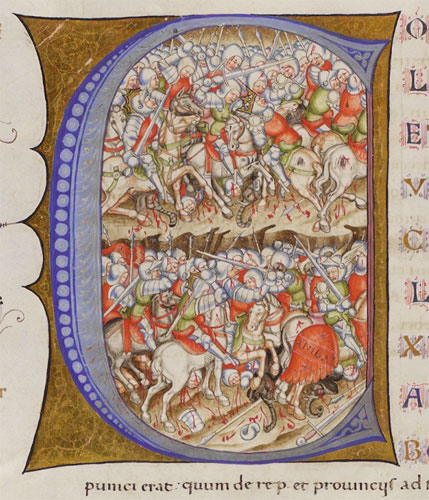 O
L
E
V
C
L
X
A
B
punici erat: quum de rep. et prouincijs ad